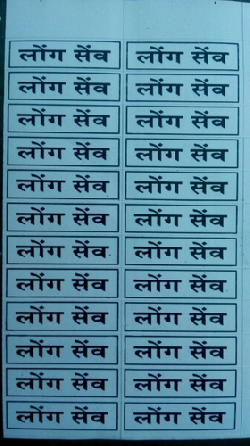 लोंग सेंव लोंग सेंव
लोंग सेंव लोंग सेंव
लोंग सेंव लोंग सेंव
लोंग सेंव लोंग सेंव
लोंग सेंव लोंग सेंव
लोंग सेंव लोंग सेंव
लोंग सेंव लोंग सेंव
लोंग सेंव लोंग सेंव
लोंग सेंव लोंग सेंव
लोंग सेंव लोंग सेंव
लोंग सेंव लोंग सेंव
लोंग सेंव लोंग सेंव